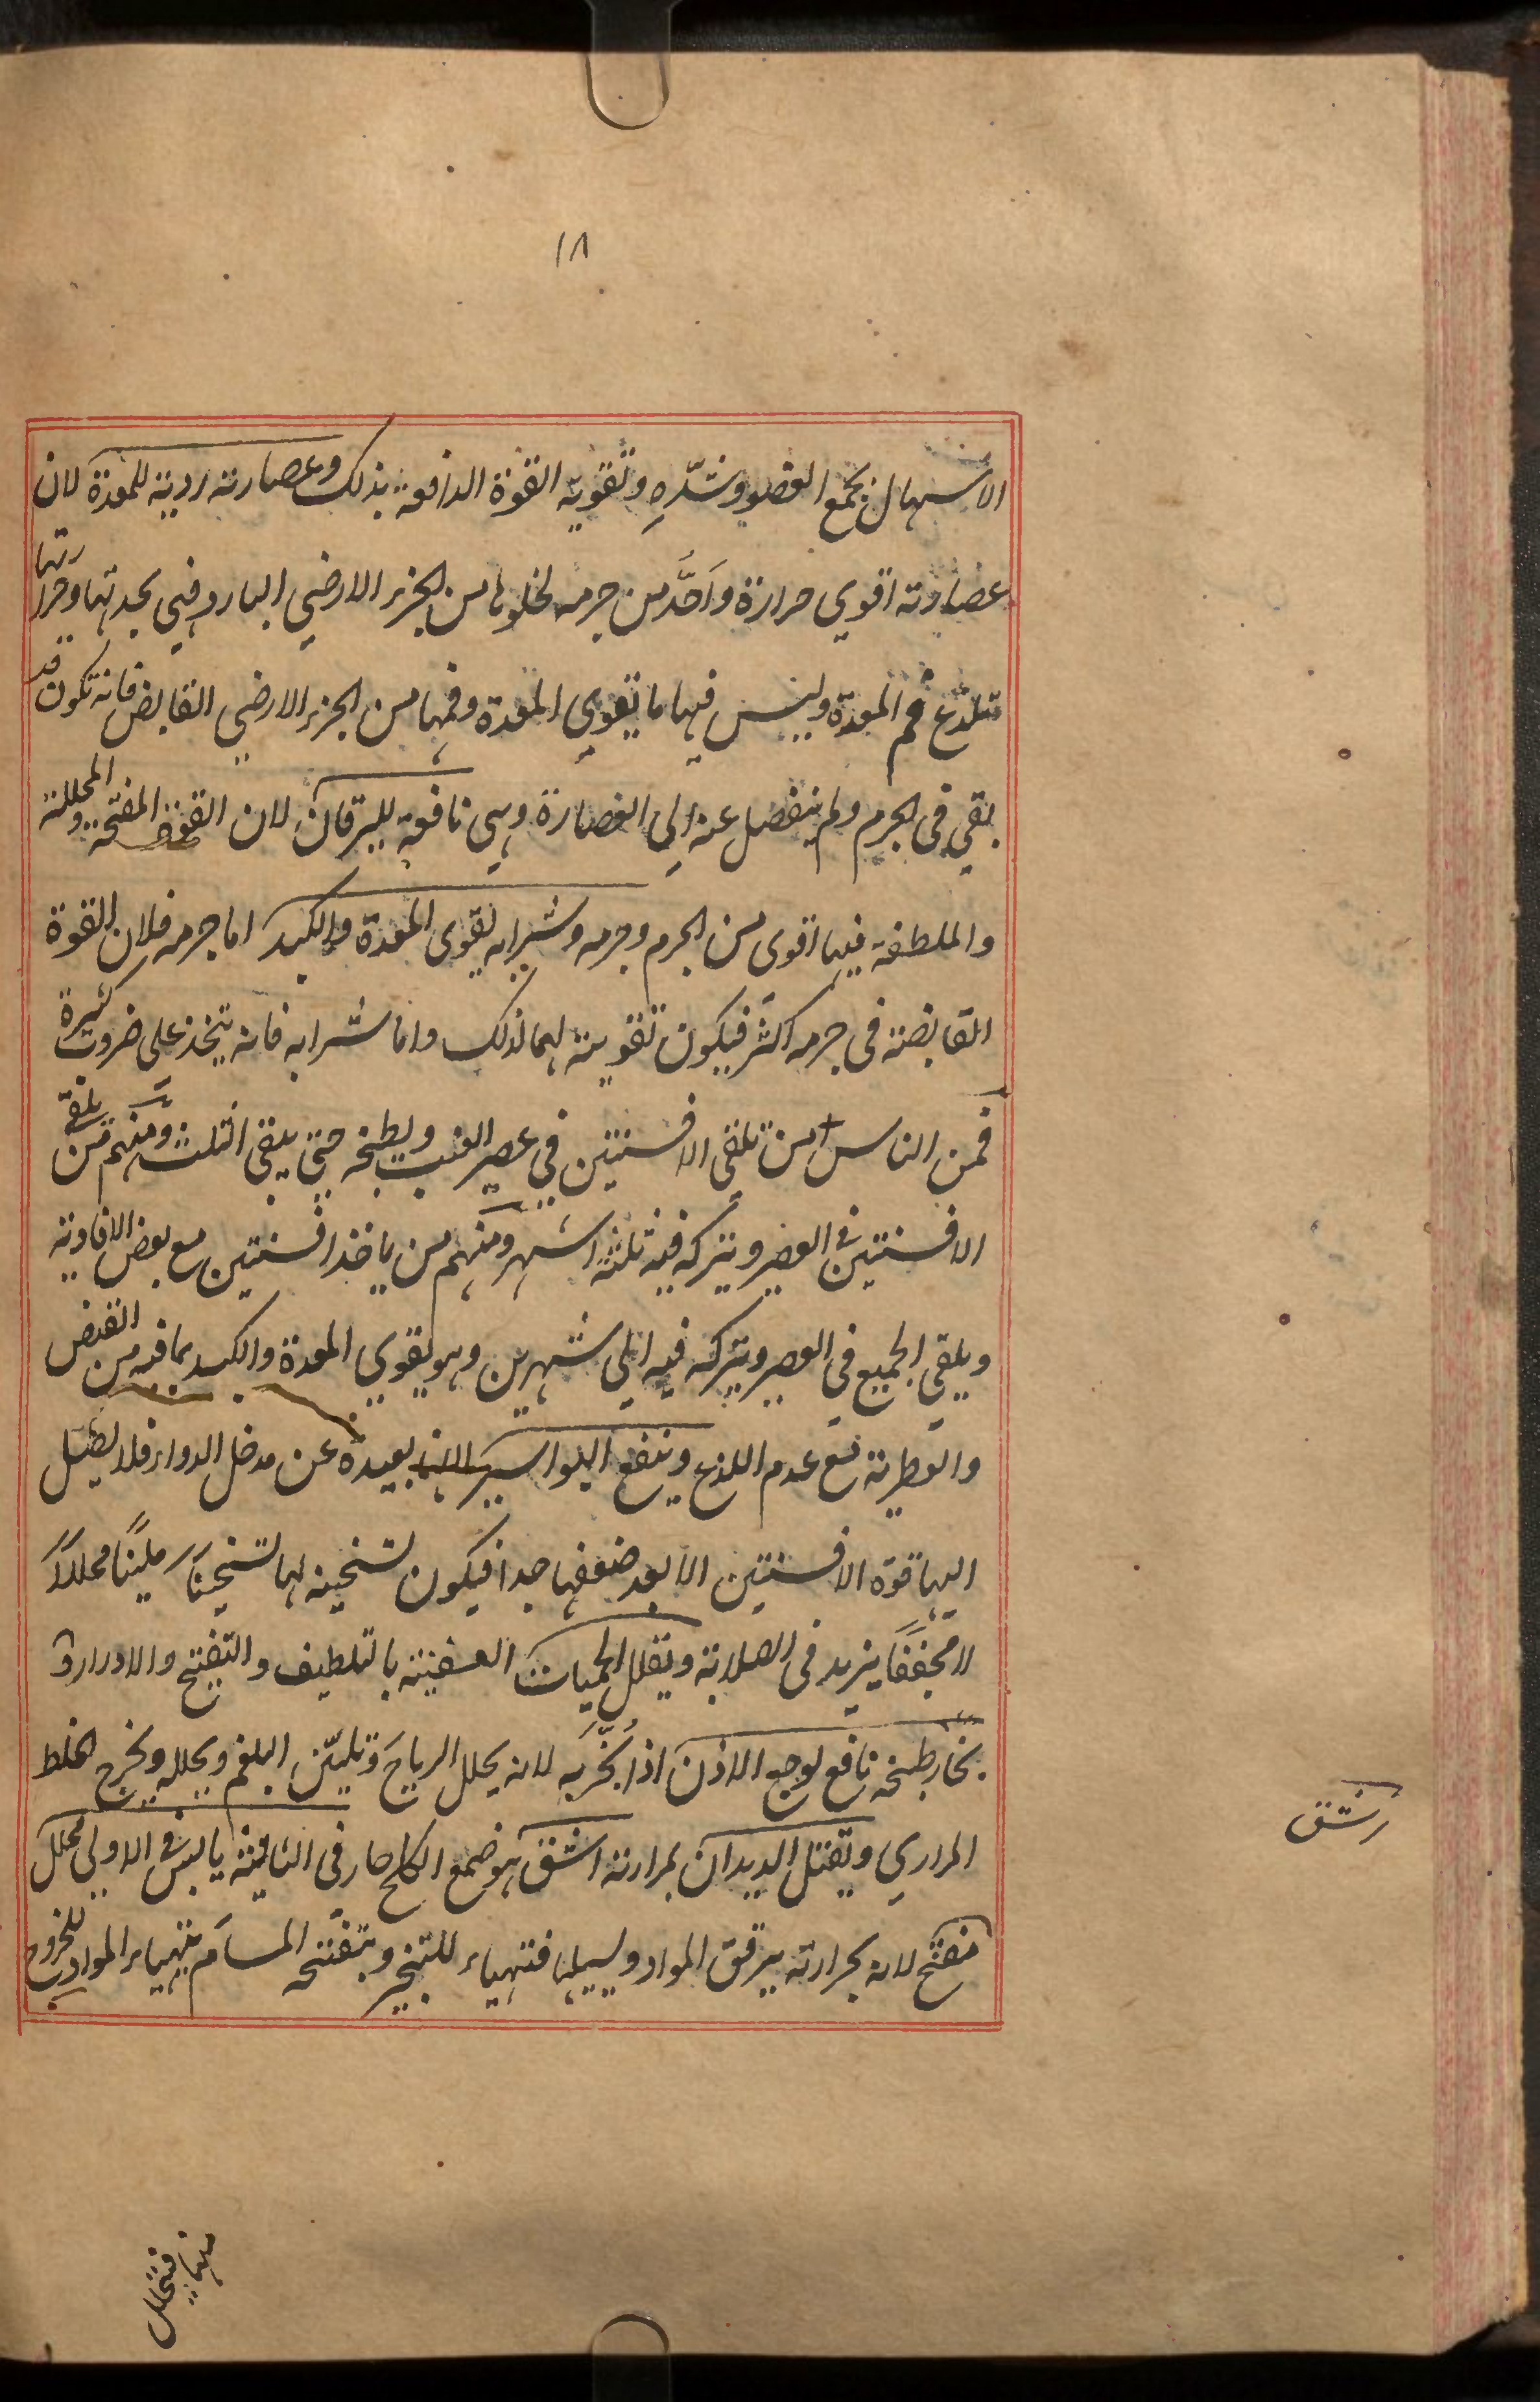 ١٨
الاسهال بجمع العضو وشدّه وتقويه القوة الدافعة بذلك وعصارته ردية للمعدة لان
عصارته اقوي حرارة واَحَدَّ من جرمه لخلوها من الجزء الارضي البارد فهي بحدتها وحرارتها
تلذع فم المعدة وليس فيها ما يقوي المعدة وفمها من الجزء الارضي القابض فانه تكون قد
بقي في الجرم ولم ينفصل عنه الي العصارة وهي نافعة لليرقان لان القوة المفتحة والمحللة
والملطفة فيها اقوى من الجرم وجرمه وشرابه يقوى المعدة والكبد اما جرمه فلان القوة
القابضة في جرمه اكثر فيكون تقويته لهما لذلك واما شرابه فانه يتخذ على ضروب كثيرة
فمن الناس من يلقي الافسنتين في عصير العنب ويطبخه حتى يبقى الثلث ومنهم من يلقي
الافسنتين في العصير ويتركه فيه ثلثة اشهر ومنهم من ياخذ افسنتين مع بعض الافاويه
ويلقي الجميع في العصير ويتركه فيه الي شهرين وهو يقوي المعدة والكبد بما فيه من القبض
والعطرية مع عدم اللذع وينفع البواسير لانها بعيدة عن مدخل الدواء فلا يصل
اليها قوة الافسنتين الا بعد ضعفها جدا فيكون تسخينه لها تسخينًا ملينًا محللاً
لا مجففًا يزيد في الصلابة ويقلل الحميات العفينة بالتلطيف والتفتيح والادرار و
بخار طبخه نافع لوجع الاذن اذا بُخّر به لانه يحلل الرياح ويليّن البلغم ويحلله ويخرج الخلط
المراري ويقتل الديدان بمرارته اشق هو صمغ الكلخ حار في الثانية يابس في الاولي محلل
مفتح لانه بحرارته يرقق المواد ويسيلها فتهياء للتبخر وبتفتحه المسام يتهياء المواد للخروج
اشق
منها فيتحلل